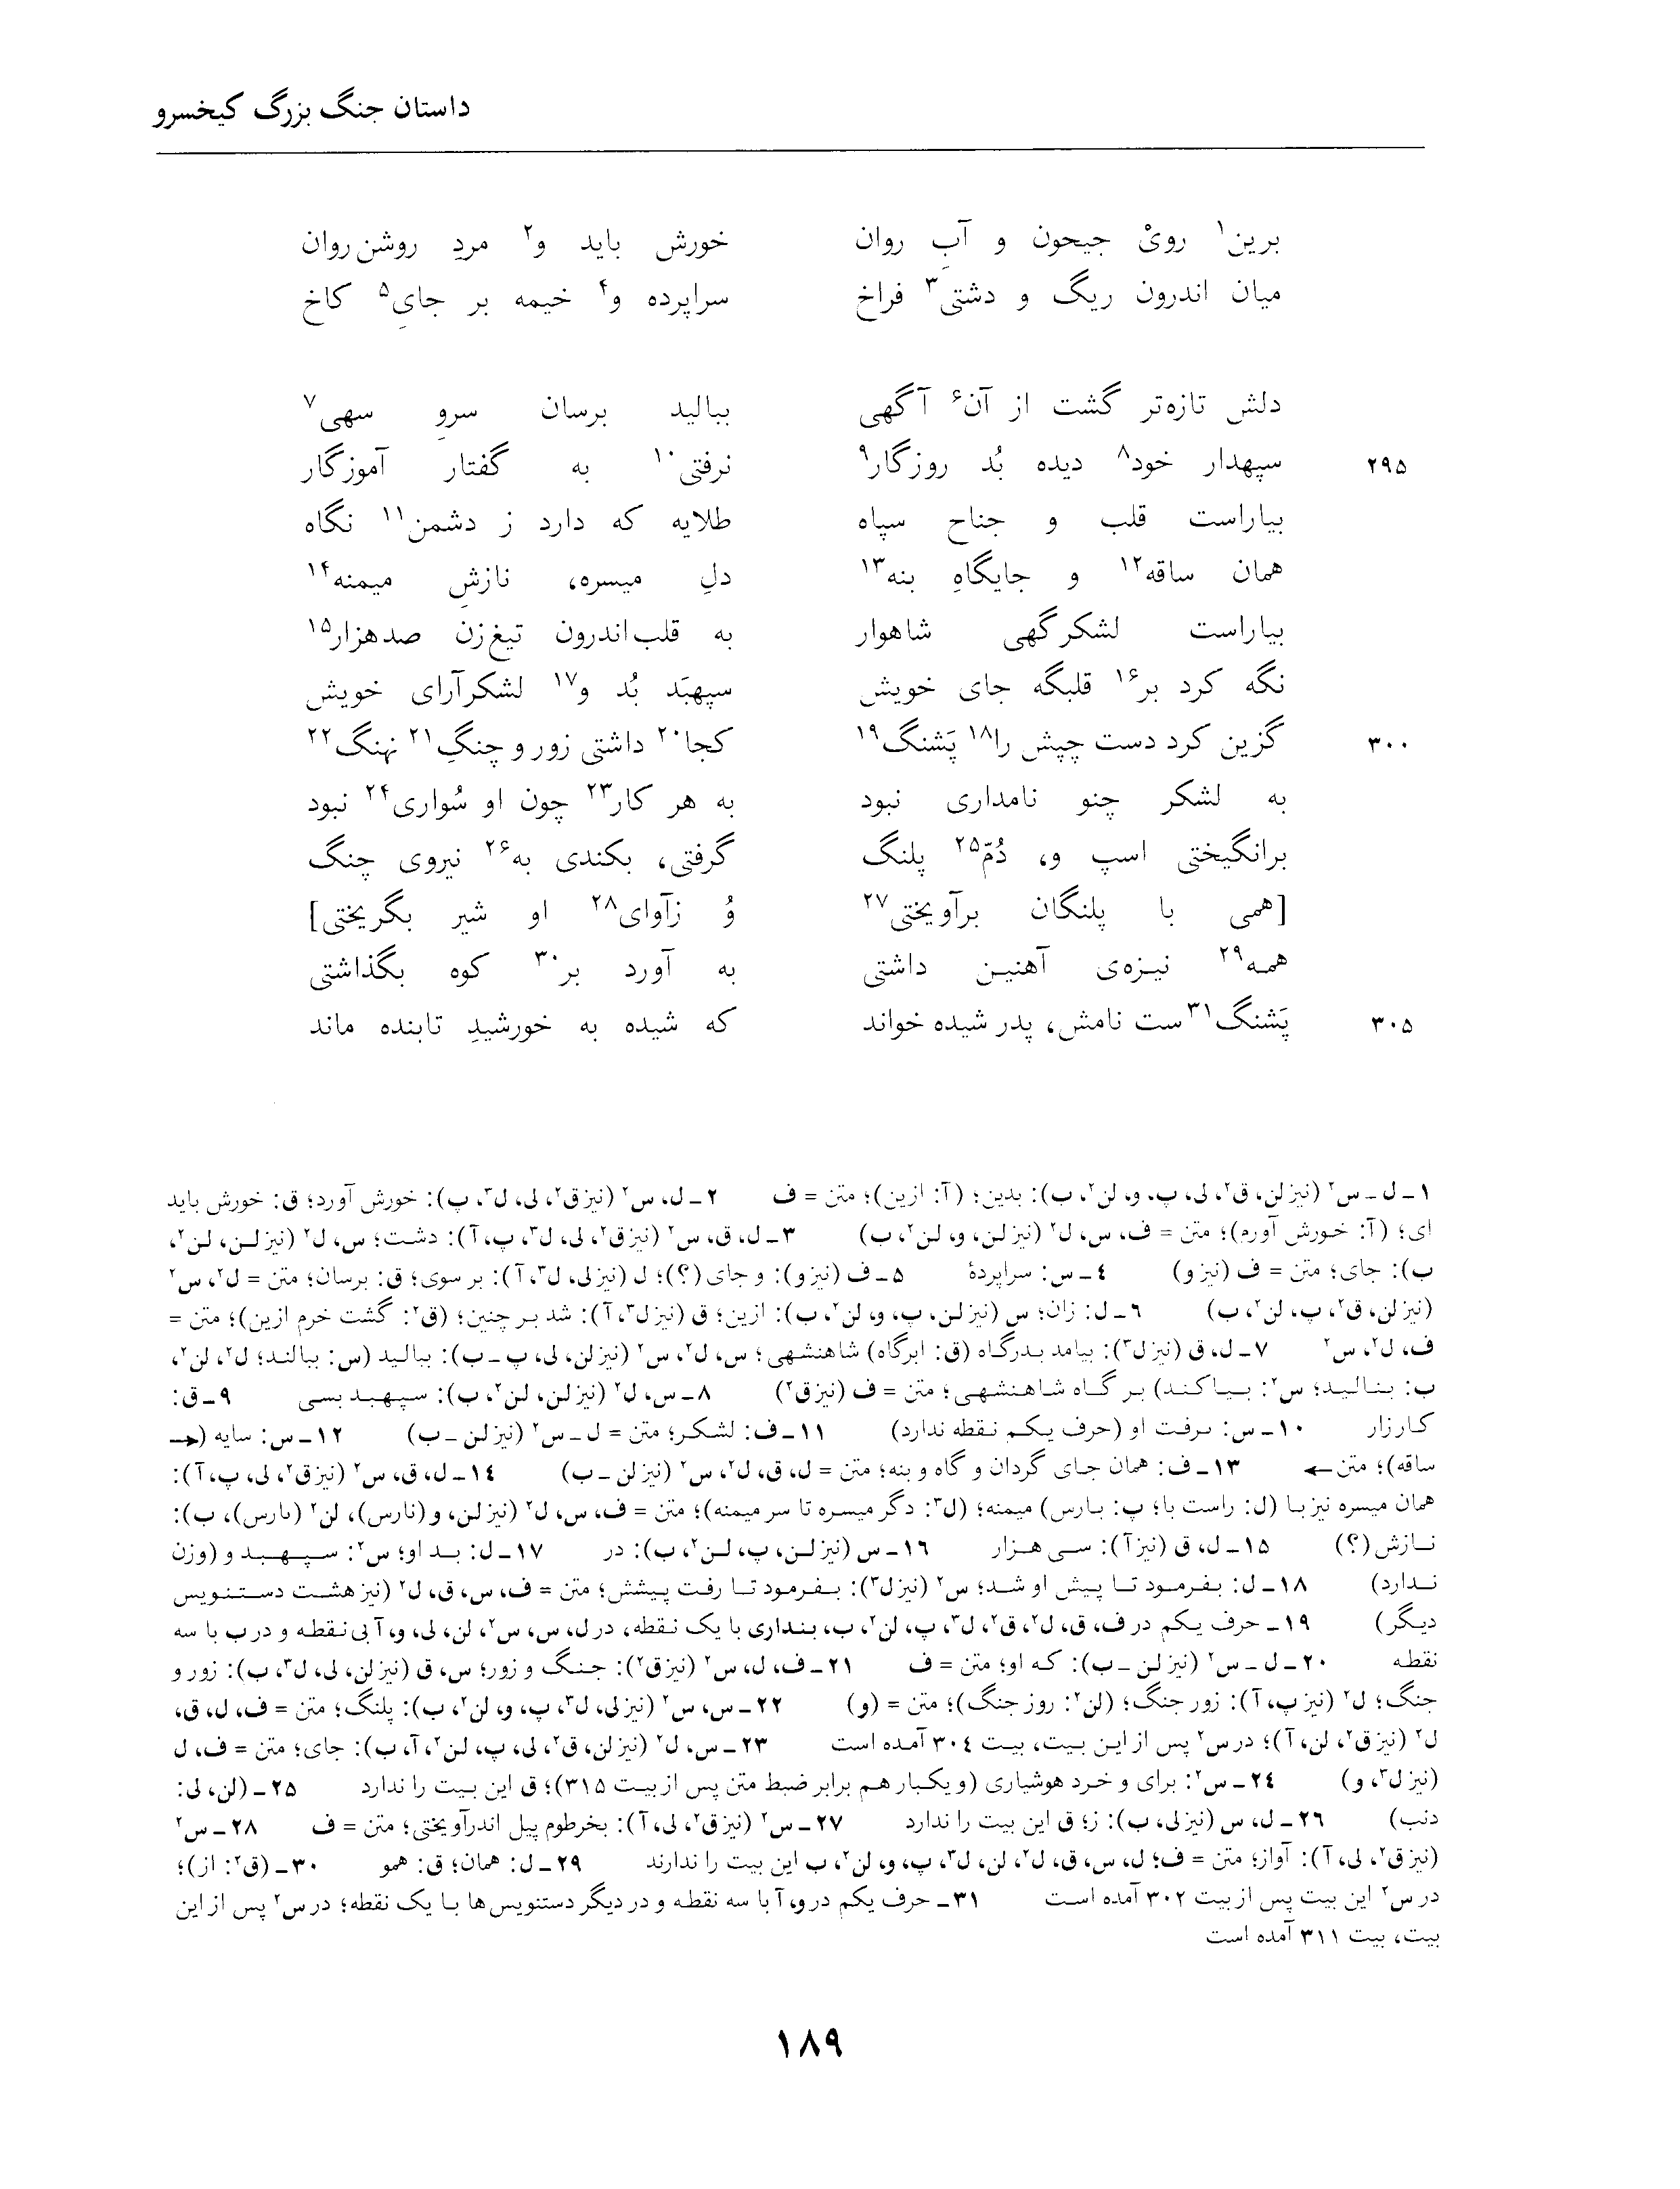 داستان جنگ بزرگ کیخسرو
برین۱ رویْ جیحون و آبِ روان خورش باید و۲ مردِ روشن‌روان
میان اندرون ریگ و دشتی۳ فراخ سراپرده و۴ خیمه بر جایِ۵ کاخ
دلش تازه‌تر گشت از آن۶ آگهی ببالید برسان سروِ سهی۷
۲۹۵ سپهدار خود۸ دیده بُد روزگار۹ نرفتی۱۰ به گفتار آموزگار
بیاراست قلب و جناح سپاه طلایه که دارد ز دشمن۱۱ نگاه
همان ساقه۱۲ و جایگاهِ بنه۱۳ دلِ میسره، نازشِ میمنه۱۴
بیاراست لشکرگهی شاهوار به قلب‌اندرون تیغ‌زن صدهزار۱۵
نگه کرد بر۱۶ قلبگه جای خویش سپهبَد بُد و۱۷ لشکرآرای خویش
۳۰۰ گزین کرد دست چپش را۱۸ پَشنگ۱۹ کجا۲۰ داشتی زور و چنگِ۲۱ نهنگ۲۲
به لشکر چنو نامداری نبود به هر کار۲۳ چون او سُواری۲۴ نبود
برانگیختی اسپ و، دُمّ۲۵ پلنگ گرفتی، بکندی به۲۶ نیروی چنگ
[همی با پلنگان برآویختی۲۷ وُ زآوای۲۸ او شیر بگریختی]
همه۲۹ نیزه‌ی آهنین داشتی به آورد بر۳۰ کوه بگذاشتی
۳۰۵ پَشنگ۳۱ست نامش، پدر شیده خواند که شیده به خورشیدِ تابنده ماند
۱ـ ل ـ س۲ (نیز لن، ق۲، لی، پ، و، لن۲، ب): بدین؛ (آ: ازین)؛ متن = ف ۲ـ ل، س۲ (نیز ق۲، لی، ل۳، پ): خورش آورد؛ ق: خورش باید
ای؛ (آ: خورش آورم)؛ متن = ف، س، ل۲ (نیز لن، و، لن۲، ب) ۳ـ ل، ق، س۲ (نیز ق۲، لی، ل۳، پ، آ): دشت؛ س، ل۲ (نیز لن، لن۲،
ب): جای؛ متن = ف (نیز و) ۴ـ س: سراپردهٔ ۵ـ ف (نیز و): و جای (؟)؛ ل (نیز لی، ل۳، آ): بر سوی؛ ق: برسان؛ متن = ل۲، س۲
(نیز لن، ق۲، پ، لن۲، ب) ۶ـ ل: زان؛ س (نیز لن، پ، و، لن۲، ب): ازین؛ ق (نیز ل۳، آ): شد بر چنین؛ (ق۲: گشت خرم ازین)؛ متن =
ف، ل۲، س۲ ۷ـ ل، ق (نیز ل۳): بیامد بدرگاه (ق: ابرگاه) شاهنشهی؛ س، ل۲، س۲ (نیز لن، لی، پ ـ ب): ببالید (س: ببالند؛ ل۲، لن۲،
ب: بنالید؛ س۲: بیاکند) بر گاه شاهنشهی؛ متن = ف (نیز ق۲) ۸ـ س، ل۲ (نیز لن، لن۲، ب): سپهبد بسی ۹ـ ق:
کارزار ۱۰ـ س: برفت او (حرف یکم نقطه ندارد) ۱۱ـ ف: لشکر؛ متن = ل ـ س۲ (نیز لن ـ ب) ۱۲ـ س: سایه (←
ساقه)؛ متن ← ۱۳ـ ف: همان جای گردان و گاه و بنه؛ متن = ل، ق، ل۲، س۲ (نیز لن ـ ب) ۱۴ـ ل، ق، س۲ (نیز ق۲، لی، پ، آ):
همان میسره نیز با (ل: راست با؛ پ: بارس) میمنه؛ (ل۳: دگر میسره تا سر میمنه)؛ متن = ف، س، ل۲ (نیز لن، و (نارس)، لن۲ (بارس)، ب):
نازش (؟) ۱۵ـ ل، ق (نیز آ): سی هزار ۱۶ـ س (نیز لن، پ، لن۲، ب): در ۱۷ـ ل: بد او؛ س۲: سپهبد و (وزن
ندارد) ۱۸ـ ل: بفرمود تا پیش او شد؛ س۲ (نیز ل۳): بفرمود تا رفت پیشش؛ متن = ف، س، ق، ل۲ (نیز هشت دستنویس
دیگر) ۱۹ـ حرف یکم در ف، ق، ل۲، ق۲، ل۳، پ، لن۲، ب، بنداری با یک نقطه، در ل، س، س۲، لن، لی، و، آ بی‌نقطه و در ب با سه
نقطه ۲۰ـ ل ـ س۲ (نیز لن ـ ب): که او؛ متن = ف ۲۱ـ ف، ل، س۲ (نیز ق۲): جنگ و زور؛ س، ق (نیز لن، لی، ل۳، ب): زور و
جنگ؛ ل۲ (نیز پ، آ): زور جنگ؛ (لن۲: روز جنگ)؛ متن = (و) ۲۲ـ س، س۲ (نیز لی، ل۳، پ، و، لن۲، ب): پلنگ؛ متن = ف، ل، ق،
ل۲ (نیز ق۲، لن، آ)؛ در س۲ پس از این بیت، بیت ۳۰۴ آمده است ۲۳ـ س، ل۲ (نیز لن، ق۲، لی، پ، لن۲، آ، ب): جای؛ متن = ف، ل
(نیز ل۳، و) ۲۴ـ س۲: برای و خرد هوشیاری (و یکبار هم برابر ضبط متن پس از بیت ۳۱۵)؛ ق این بیت را ندارد ۲۵ـ (لن، لی:
دنب) ۲۶ـ ل، س (نیز لی، ب): ز؛ ق این بیت را ندارد ۲۷ـ س۲ (نیز ق۲، لی، آ): بخرطوم پیل اندرآویختی؛ متن = ف ۲۸ـ س۲
(نیز ق۲، لی، آ): آواز؛ متن = ف؛ ل، س، ق، ل۲، لن، ل۳، پ، و، لن۲، ب این بیت را ندارند ۲۹ـ ل: همان؛ ق: همو ۳۰ـ (ق۲: از)؛
در س۲ این بیت پس از بیت ۳۰۲ آمده است ۳۱ـ حرف یکم در و، آ با سه نقطه و در دیگر دستنویس‌ها با یک نقطه؛ در س۲ پس از این
بیت، بیت ۳۱۱ آمده است
۱۸۹